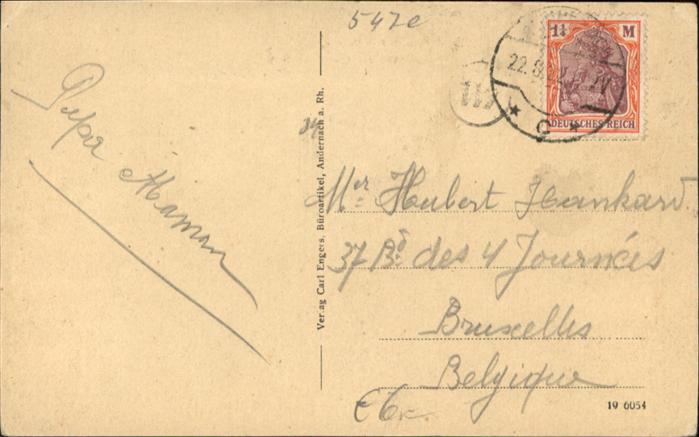 547e
1¼ M
DEUTSCHES REICH
22.8.22
* c *
Papa Maman
Verlag Carl Engers, Büroartikel, Andernach a. Rh.
Mer Hubert Jeankard.
37 Bd des 4 Journées
Bruxelles
Belgique
19 6054